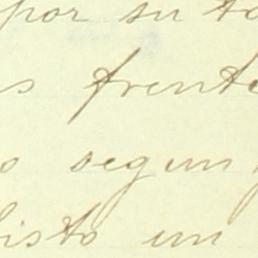 por su to
s frente
o segun
listo un